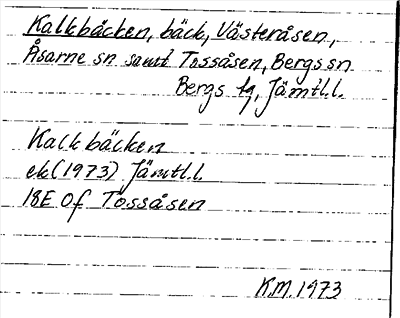 Kalkbäcken, bäck, Västeråsen,
Åsarne sn samt Tossåsen, Bergs sn
Bergs tg, Jämtl.l.
Kalkbäcken
ek(1973) Jämtl.l.
18E 0f Tossåsen
KM.1973